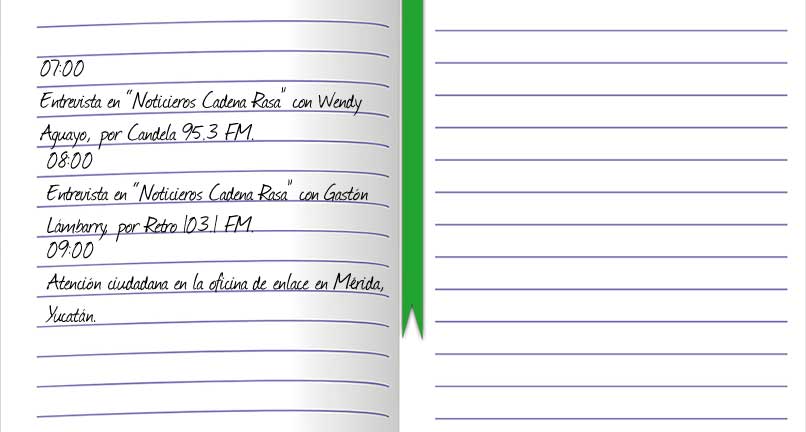 07:00
Entrevista en "Noticieros Cadena Rasa" con Wendy
Aguayo, por Candela 95.3 FM.
08:00
Entrevista en "Noticieros Cadena Rasa" con Gastón
Lámbarry, por Retro 103.1 FM.
09:00
Atención ciudadana en la oficina de enlace en Mérida,
Yucatán.